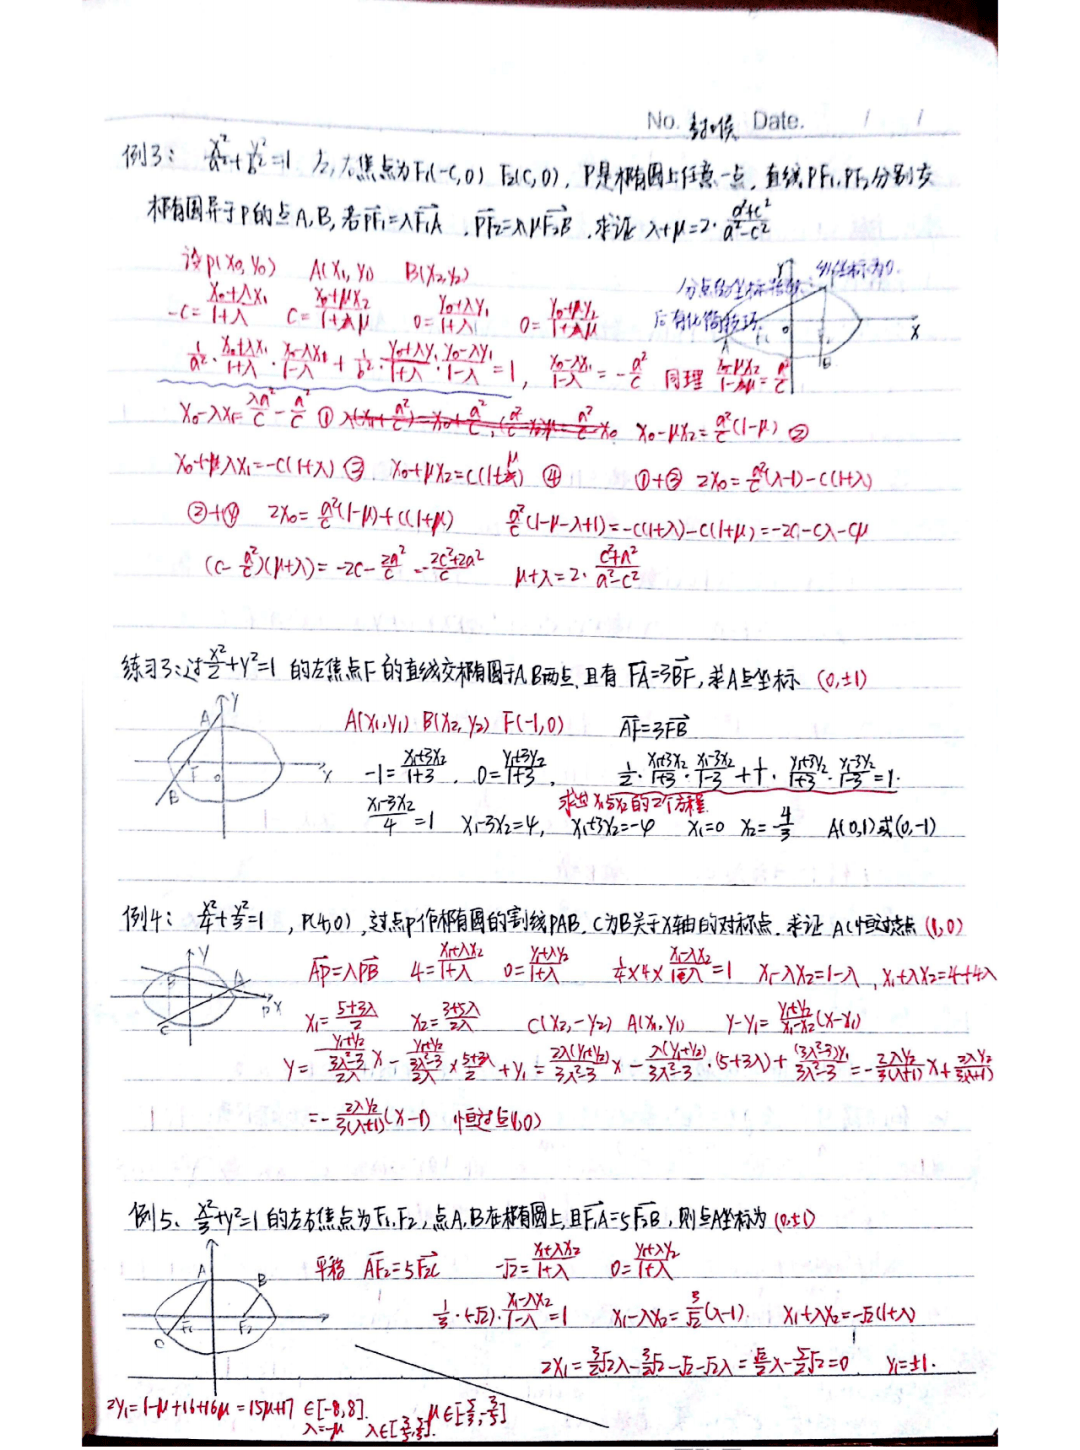 No. Date. / /
例3: x²/a²+y²/b²=1 左,右焦点为F₁(-C,0) F₂(C,0), P是椭圆上任意一点,直线PF₁,PF₂分别交
椭圆异于P的点A,B,若PF₁=λF₁A , PF₂=μF₂B ,求证 λ+μ=2·(a²+c²)/(a²-c²)
设P(X₀,Y₀) A(X₁,Y₁) B(X₂,Y₂)
-C=(X₀+λX₁)/(1+λ) C=(X₀+μX₂)/(1+μ) 0=(Y₀+λY₁)/(1+λ) 0=(Y₀+μY₂)/(1+μ)
1/a²·(X₀+λX₁)/(1+λ)·(X₀-λX₁)/(1-λ)+1/b²·(Y₀+λY₁)/(1+λ)·(Y₀-λY₁)/(1-λ)=1, (X₀-λX₁)/(1-λ)=-a²/c 同理 (X₀-μX₂)/(1-μ)=a²/c
X₀-λX₁=λa²/c-a²/c ① X₀-μX₂=a²/c(1-μ) ②
X₀+λX₁=-C(1+λ) ③ X₀+μX₂=C(1+μ) ④ ①+③ 2X₀=a²/c(λ-1)-C(1+λ)
②+④ 2X₀=a²/c(1-μ)+C(1+μ) a²/c(1-μ-λ+1)=-C(1+λ)-C(1+μ)=-2C-Cλ-Cμ
(C-a²/c)(μ+λ)=-2C-2a²/c=-(2c²+2a²)/c μ+λ=2·(c²+a²)/(a²-c²)
练习3:过x²/2+y²=1 的左焦点F的直线交椭圆于A,B两点,且有 FA=3BF,求A点坐标 (0,±1)
A(X₁,Y₁) B(X₂,Y₂) F(-1,0) AF=3FB
-1=(X₁+3X₂)/(1+3) , 0=(Y₁+3Y₂)/(1+3) , 1/2·(X₁+3X₂)/(1+3)·(X₁-3X₂)/(1-3)+1/1·(Y₁+3Y₂)/(1+3)·(Y₁-3Y₂)/(1-3)=1.
求出X₁与X₂的2个方程
(X₁-3X₂)/4=1 X₁-3X₂=4, X₁+3X₂=-4 X₁=0 X₂=-4/3 A(0,1)或(0,-1)
例4: x²/4+y²/3=1 , P(4,0) ,过点P作椭圆的割线PAB, C为B关于X轴的对称点.求证 AC恒过定点 (1,0)
AP=λPB 4=(X₁+λX₂)/(1+λ) 0=(Y₁+λY₂)/(1+λ) 1/4×4×(X₁-λX₂)/(1-λ)=1 X₁-λX₂=1-λ , X₁+λX₂=4+4λ
X₁=(5+3λ)/2 X₂=(3+5λ)/2λ C(X₂,-Y₂) A(X₁,Y₁) Y-Y₁=(Y₁+Y₂)/(X₁-X₂)(X-X₁)
Y=(Y₁+Y₂)/((3λ²-3)/2λ)X-(Y₁+Y₂)/((3λ²-3)/2λ)×(5+3λ)/2+Y₁=2λ(Y₁+Y₂)/(3λ²-3)X-λ(Y₁+Y₂)/(3λ²-3)·(5+3λ)+(3λ²-3)Y₁/(3λ²-3)=-2λY₂/3(λ+1)X+2λY₂/3(λ+1)
=-2λY₂/3(λ+1)(X-1) 恒过点(1,0)
例5、x²/3+y²=1 的左右焦点为F₁,F₂,点A,B在椭圆上,且F₁A=5F₂B,则点A坐标为 (0,±1)
平移 AF₁=5F₁C -√2=(X₁+λX₂)/(1+λ) 0=(Y₁+λY₂)/(1+λ)
1/3·(-√2)·(X₁-λX₂)/(1-λ)=1 X₁-λX₂=3/√2(λ-1) X₁+λX₂=-√2(1+λ)
2X₁=3/2√2λ-3/2√2-√2-√2λ=√2/2λ-5/2√2=0 Y₁=±1.
2Y₁=1-μ+16+16μ=15μ+17 ∈[-8,8].
λ=-μ